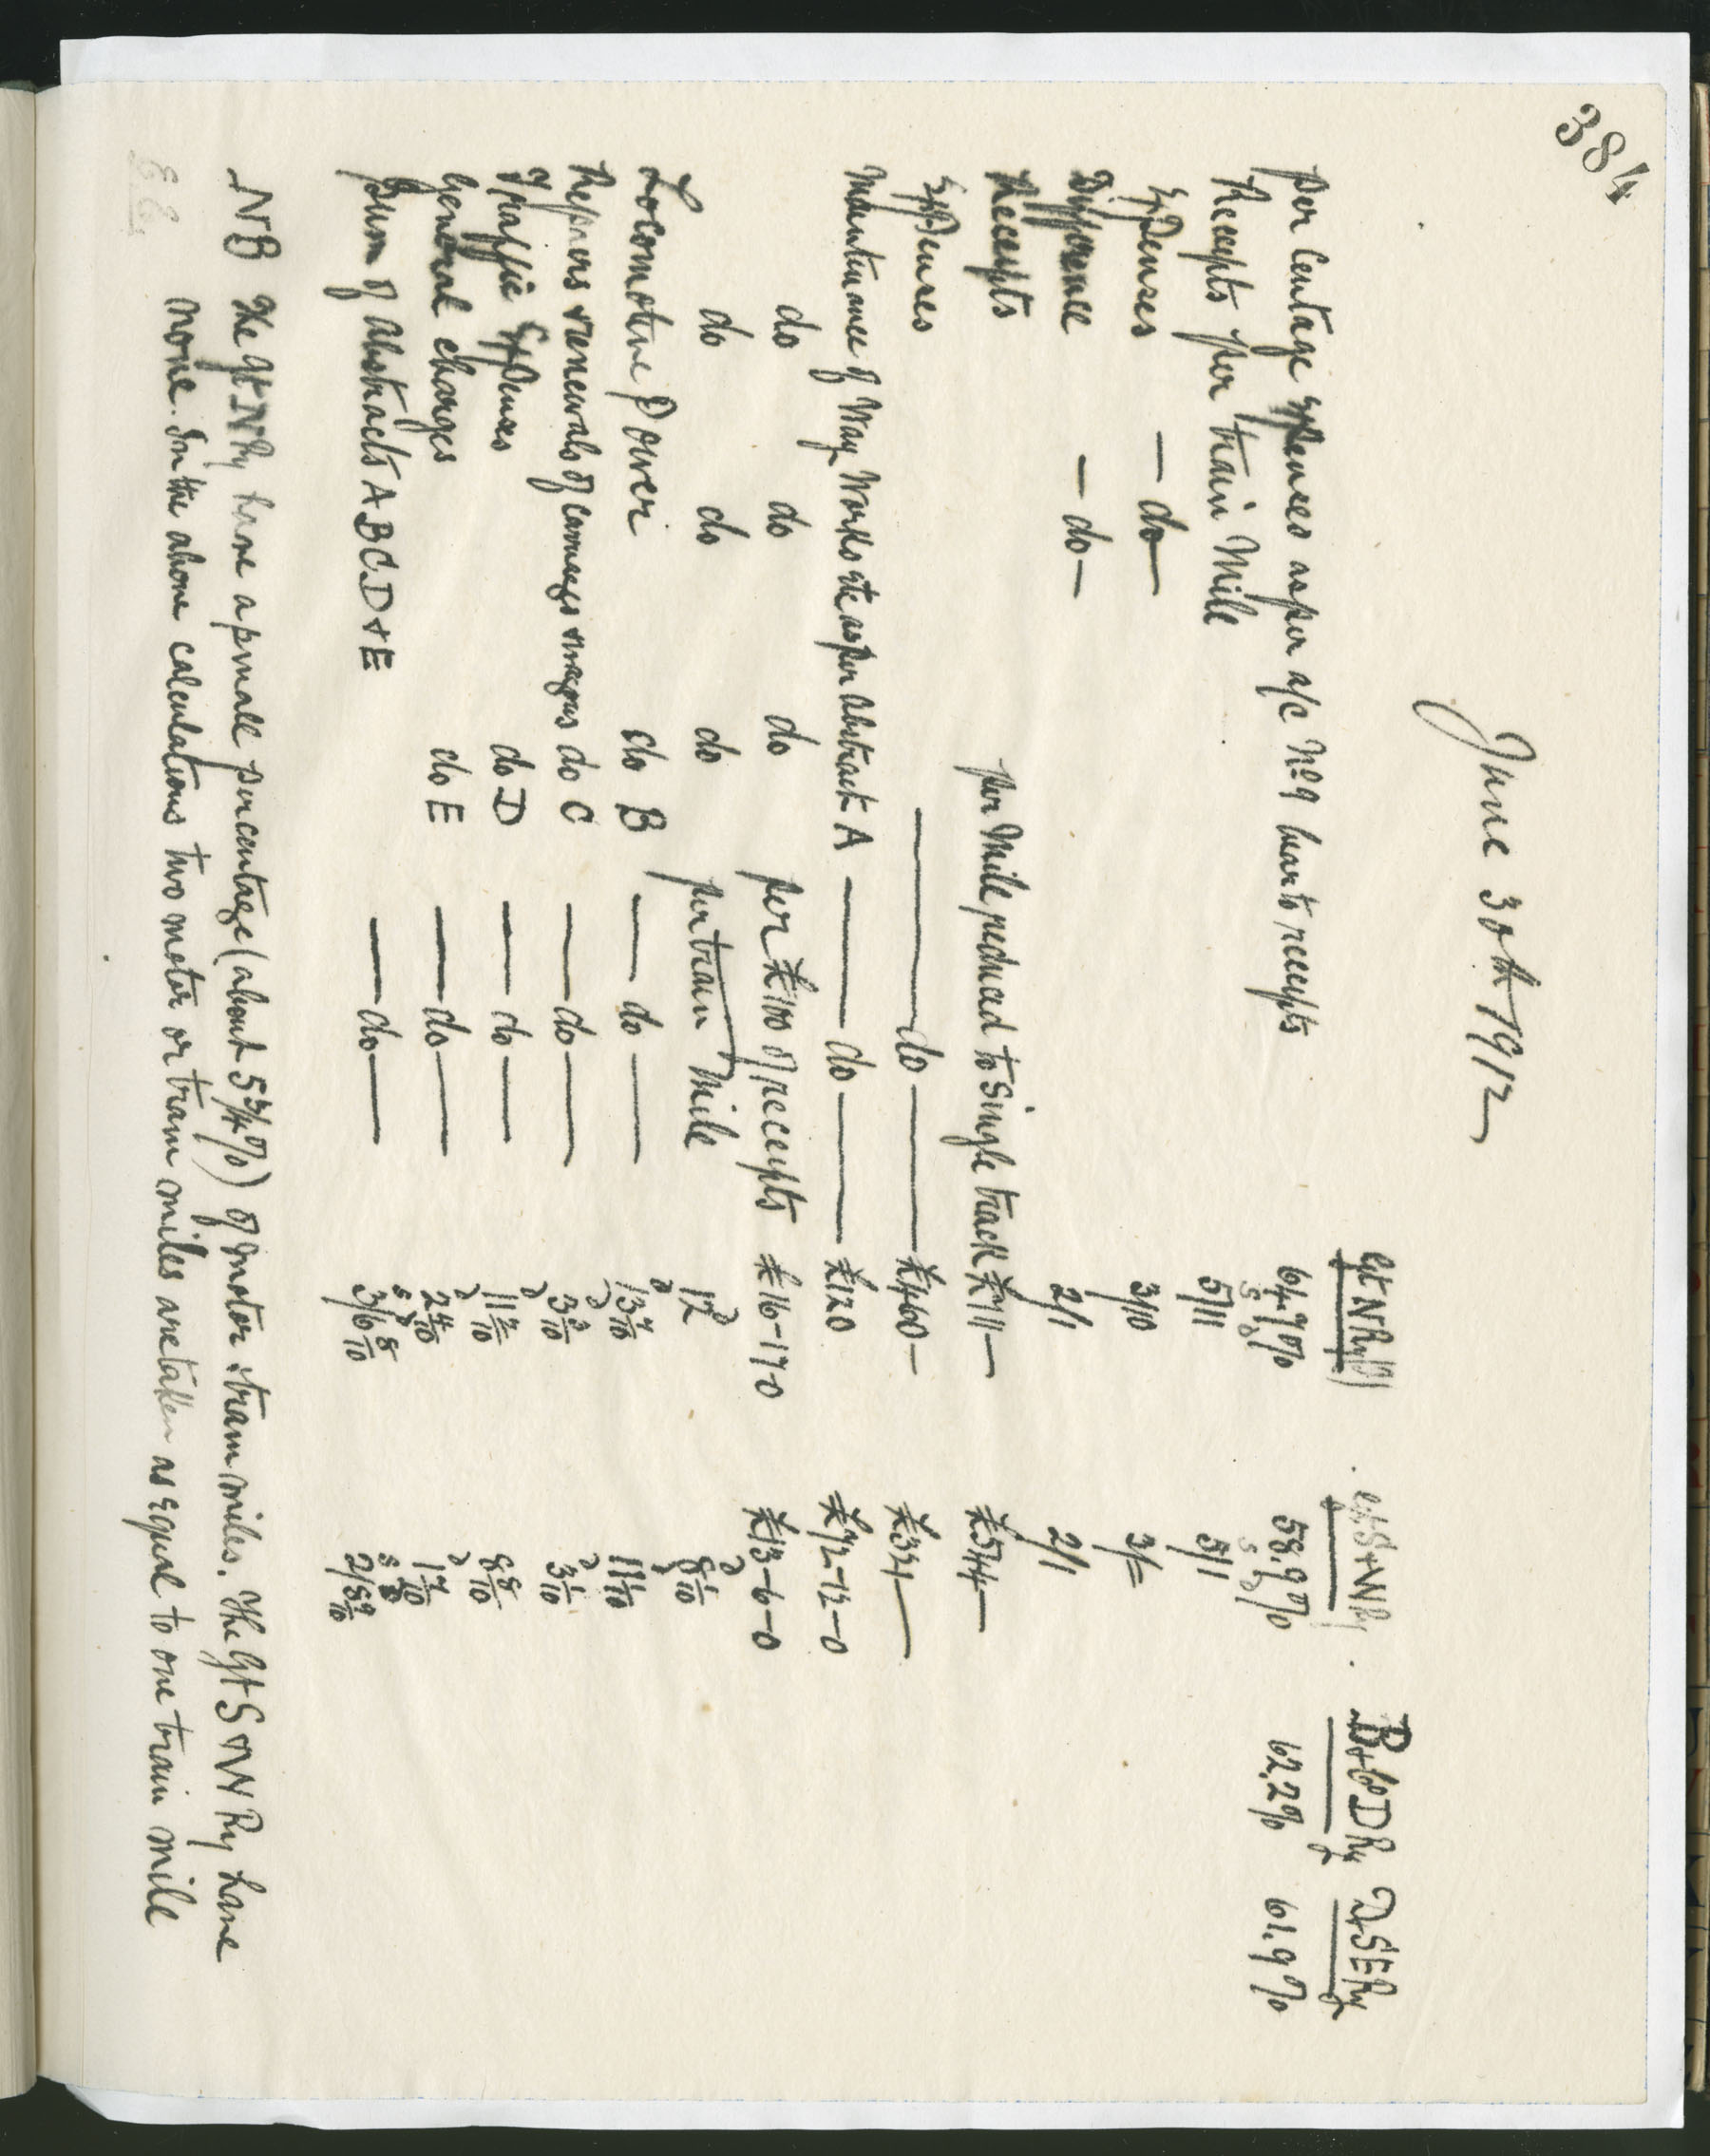 384
June 30th 1912
Gt NRy(I) Gt S & W Ry B & Co D Ry D & S E Ry
Per Centage Expenses as per a/c No 9 bear to receipts 64.9% 58.9% 62.2% 61.9%
Receipts per train Mile 5/11 5/1
Expenses — do — 3/10 3/=
Difference — do — 2/1 2/1
Receipts per Mile reduced to Single track £711— £544—
Expenses — do — £460— £321—
Maintenance of Way Works etc as per Abstract A — do — £120 £72-12-0
do do do per £100 of receipts £16-17-0 £13-6-0
do do do per train Mile 12d 8 1/10d
Locomotive Power do B — do — 13 7/10d 11 1/10d
Repairs & renewals of Carriages & wagons do C — do — 3 2/10d 3 1/10d
Traffic Expenses do D — do — 11 2/10d 8 8/10
General charges do E — do — 2 4/10d 1 7/10d
Sum of Abstracts A B C D & E — do — 3/6 8/10 2/8 9/10
NB The Gt N Ry have a small percentage (about 5 3/4%) of motor & tram miles. The Gt S & W Ry have
none. In the above calculations two motor or tram miles are taken as equal to one train mile